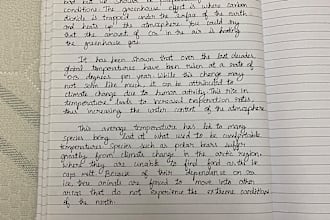 bad but we should be
conditions. The greenhouse effect is where carbon
dioxide is trapped under the surface of the earth
and heats up the atmosphere. You could say
that the amount of CO₂ in the air is having
the greenhouse gas.
It has been shown that over the last decades
global temperatures have been risen at a rate of
0.13 degrees per year. While this change may
not seem like much, it can be attributed to
climate change due to human activity. This rise in
temperature leads to increased evaporation rates
thus increasing the water content of the atmosphere.
This average temperature has led to many
species being out of what used to be comfortable
temperatures. Species such as polar bears suffer
greatly from climate change in the arctic region,
where they are unable to find food as the ice
caps melt. Because of their dependance on sea
ice, these animals are forced to move into other
areas that do not experience the extreme conditions
of the north.